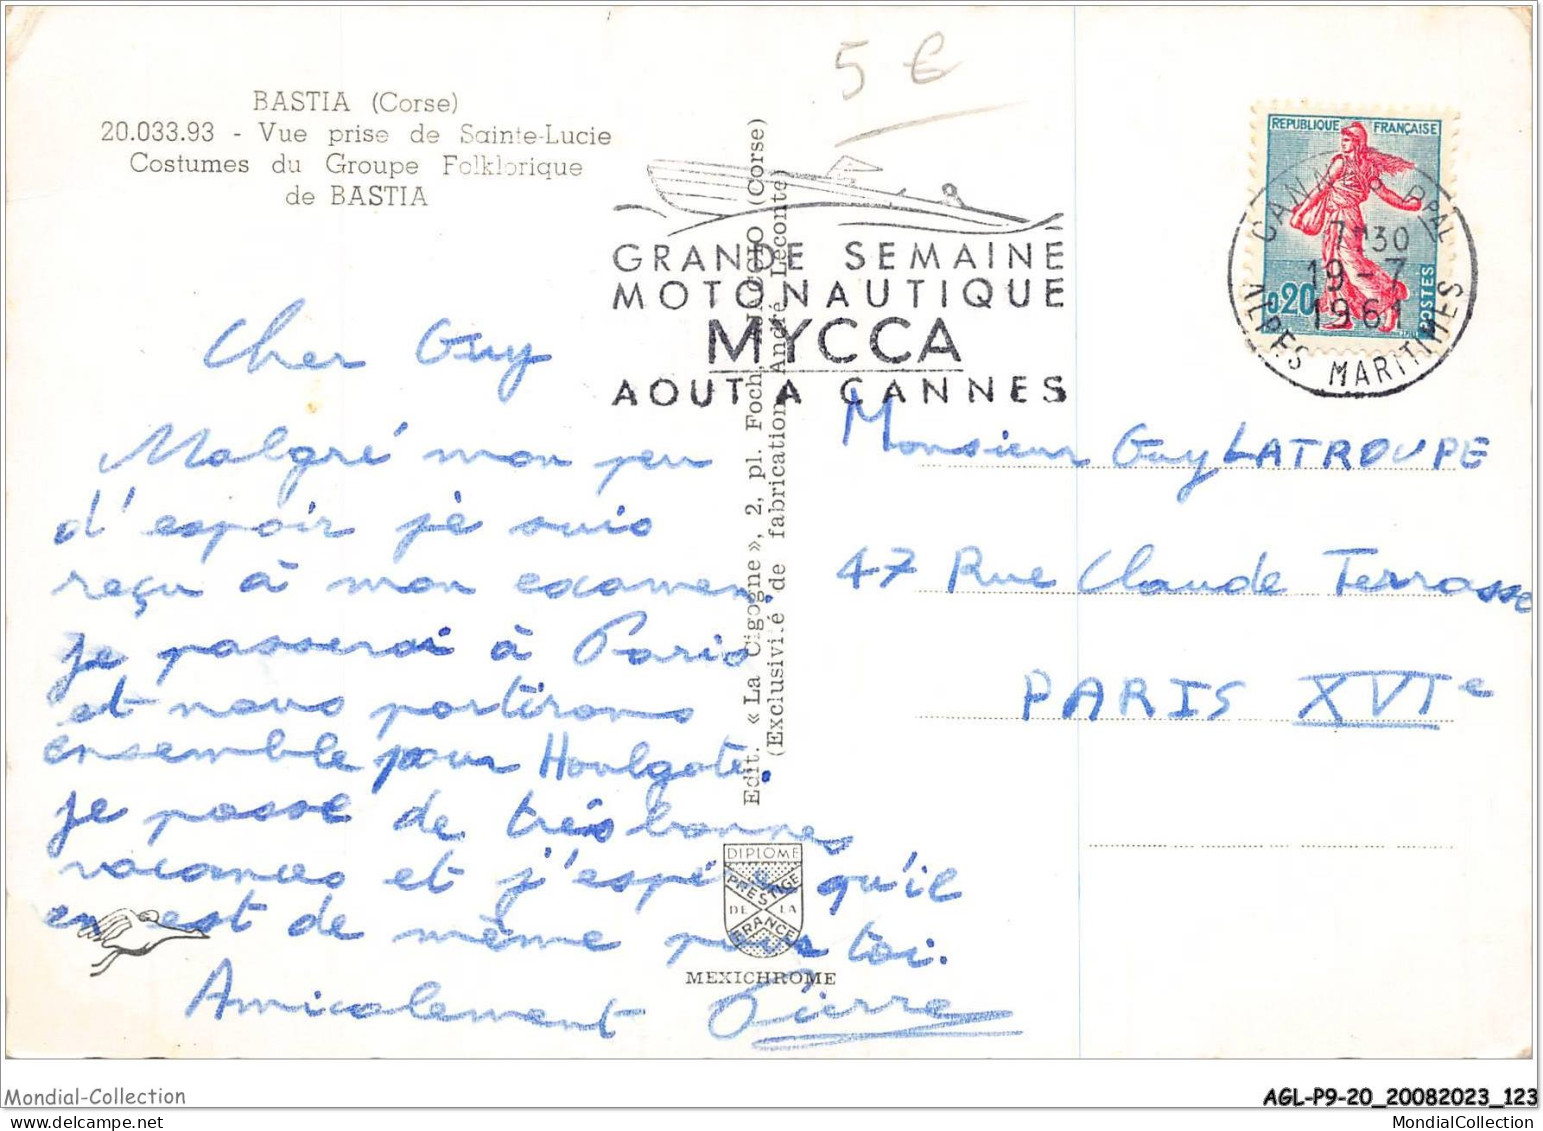 5 €
BASTIA (Corse)
20.033.93 - Vue prise de Sainte-Lucie
Costumes du Groupe Folklorique
de BASTIA
GRANDE SEMAINE
MOTONAUTIQUE
MYCCA
AOUT A CANNES
REPUBLIQUE FRANÇAISE
0,20
POSTES
CANNES PPAL
7H30
19-7
1961
ALPES MARITIMES
Edit. « La Cigogne », 2, pl. Foch, AJACCIO (Corse)
(Exclusivité de fabrication André Leconte)
Cher Guy
Malgré mon peu
d'espoir je suis
reçu à mon examen.
je passerai à Paris
et nous partirons
ensemble pour Houlgate.
je passe de très bonnes
vacances et j'espère qu'il
en est de même pour toi.
Amicalement Pierre
Monsieur Guy LATROUPE
47 Rue Claude Terrasse
PARIS XVIe
DIPLOME
PRESTIGE
DE LA
FRANCE
MEXICHROME
Mondial-Collection
AGL-P9-20_20082023_123
MondialCollection